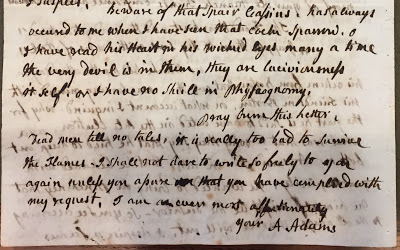 Beware of that Spair Cassius. has always
occured to me when I have seen that cock Sparrow. O
I have read his Heart in his wicked Eyes many a time
the very devil is in them, they are laciviousness
it self, or I have no skill in Physiognomy,
Pray burn this Letter.
Dead men tell no tales, it is really too bad to survive
the Flames. I shall not dare to write so freely to you
again unless you assure that you have complied with
my request, I am as ever most affectionately
your A Adams